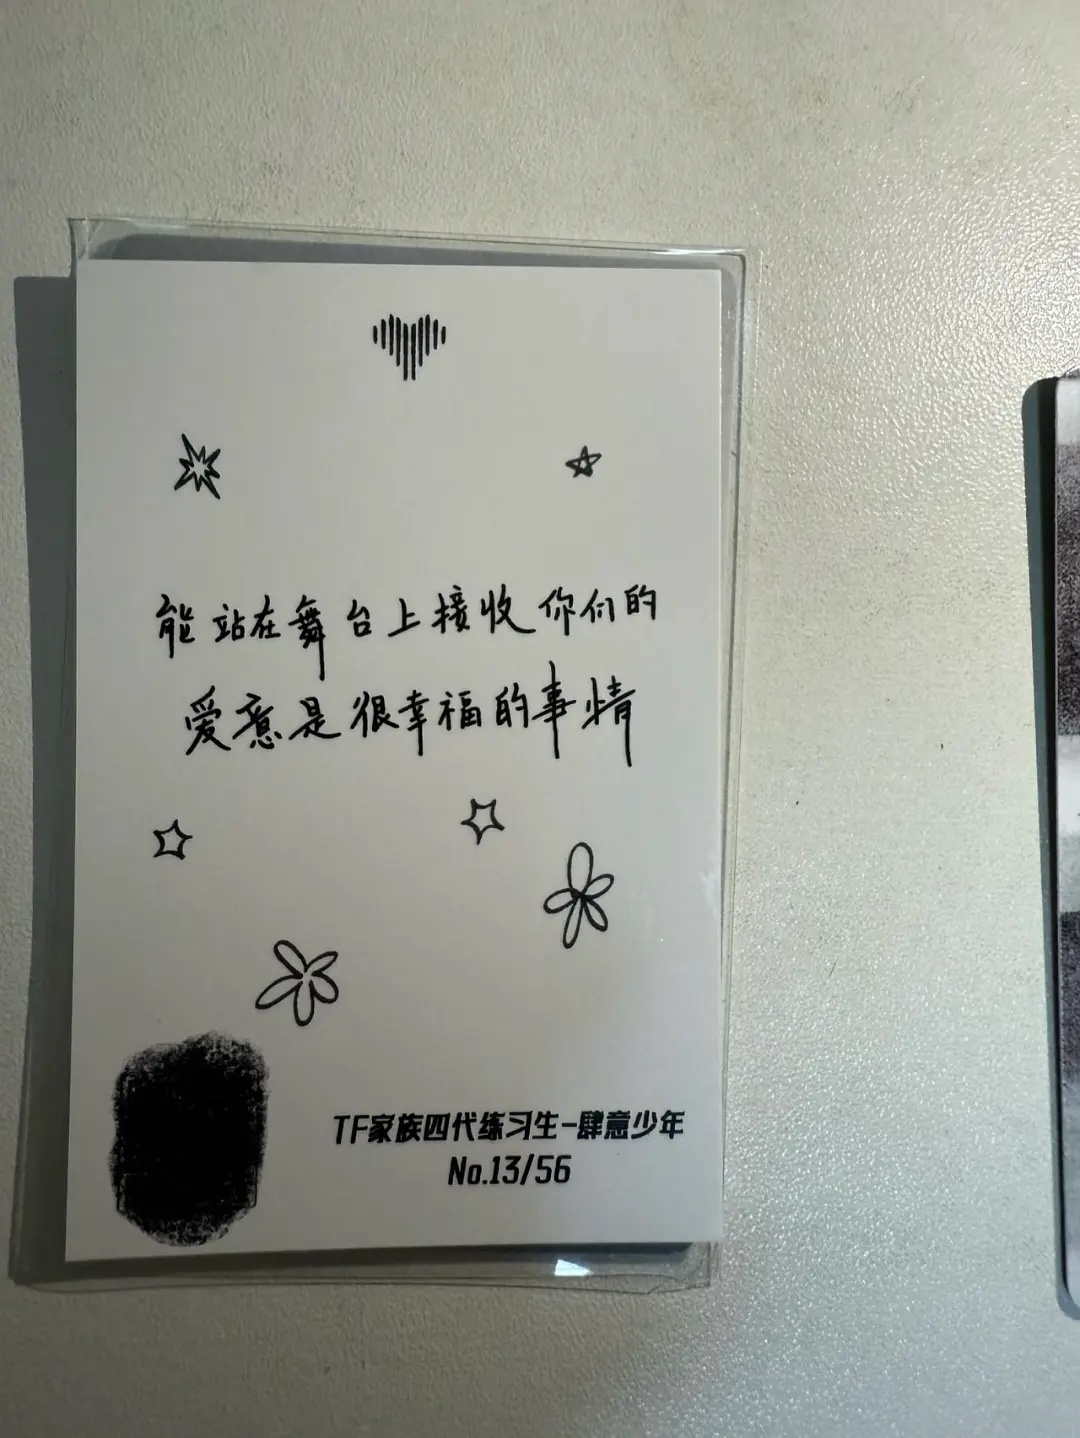 能站在舞台上接收你们的
爱意是很幸福的事情
TF家族四代练习生-肆意少年
No.13/56